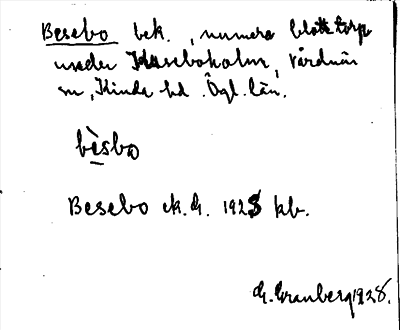 Besebo bek., numera blott torp
under Kaseboholm, Vårdnäs
sn, Kinda hd. Ögl. län.
bèsbo
Besebo ek. G. 1925 kb.
G. Granberg 1928.